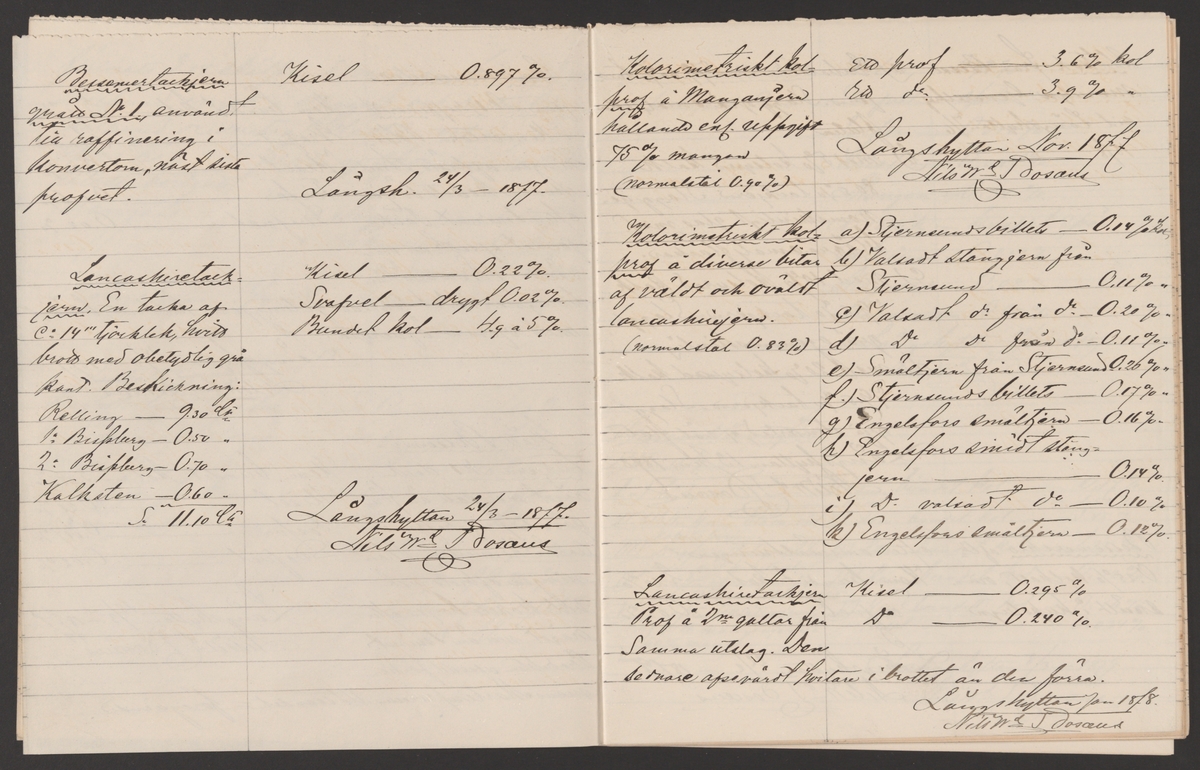 Bessemertackjern
grått N:1, användt
till raffinering i
konvertorn, näst sista
profvet.
Kisel — 0.897 %.
Långsh. 24/3 – 1877.
Lancashiretack-
jern. En tacka af
c:a 14''' tjocklek, hvitt
brott med obetydlig grå
kant. Beskickning:
Relling — 9.30 Ct
1:a Bispberg — 0.50 "
2:a Bispberg — 0.70 "
Kalksten — 0.60 "
S:a 11.10 Ct
Kisel — 0.22 %.
Svafvel — drygt 0.02 %.
Bundet kol — 4.9 à 5 %.
Långshyttan 24/3 – 1877.
Nils Wm
Kolorimetriskt kol-
prof å Manganjern
hållande enl. uppgift
75 % mangan
(normalstål 0.90 %)
Ett prof — 3.6 % kol
Ett d:o — 3.9 % "
Långshyttan Nov. 1877
Nils Wm
Kolorimetriskt kol-
prof å diverse bitar
af väldt och ovältt
lancashirejern.
(normalstål 0.83 %)
a) Stjernsunds billets — 0.14 % kol,
b) Valsadt stångjern från
Stjernsund — 0.11 % "
c) Valsadt d:o från d:o — 0.20 % "
d) D:o d:o från d:o — 0.11 % "
e) Smältjern från Stjernsund 0.26 % "
f) Stjernsunds billets — 0.17 % "
g) Engelsfors smältjern — 0.16 %.
h) Engelsfors smidt stång-
jern — 0.14 %.
i) D:o valsadt d:o — 0.10 %
k) Engelsfors smältjern — 0.12 %.
Lancashiretackjern
Prof å 2ne galtar från
samma utslag. Den
sednare afsevärdt hvitare i brottet än den förra.
Kisel — 0.295 %
D:o — 0.240 %.
Långshyttan jan 1878.
Nils Wm